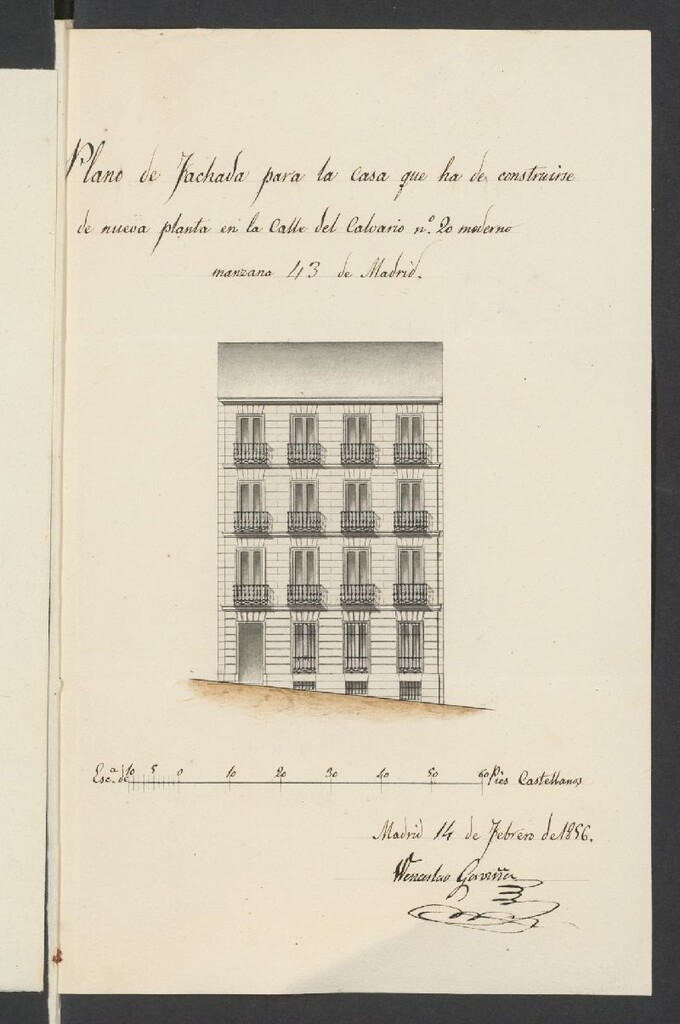 Plano de Fachada para la casa que ha de construirse
de nueva planta en la Calle del Calvario nº. 20 moderno
manzana 43 de Madrid.
Esc.ª de 10 5 0 10 20 30 40 50 60 Pies Castellanos
Madrid 14 de Febrero de 1856.
Wenceslao Gaviña